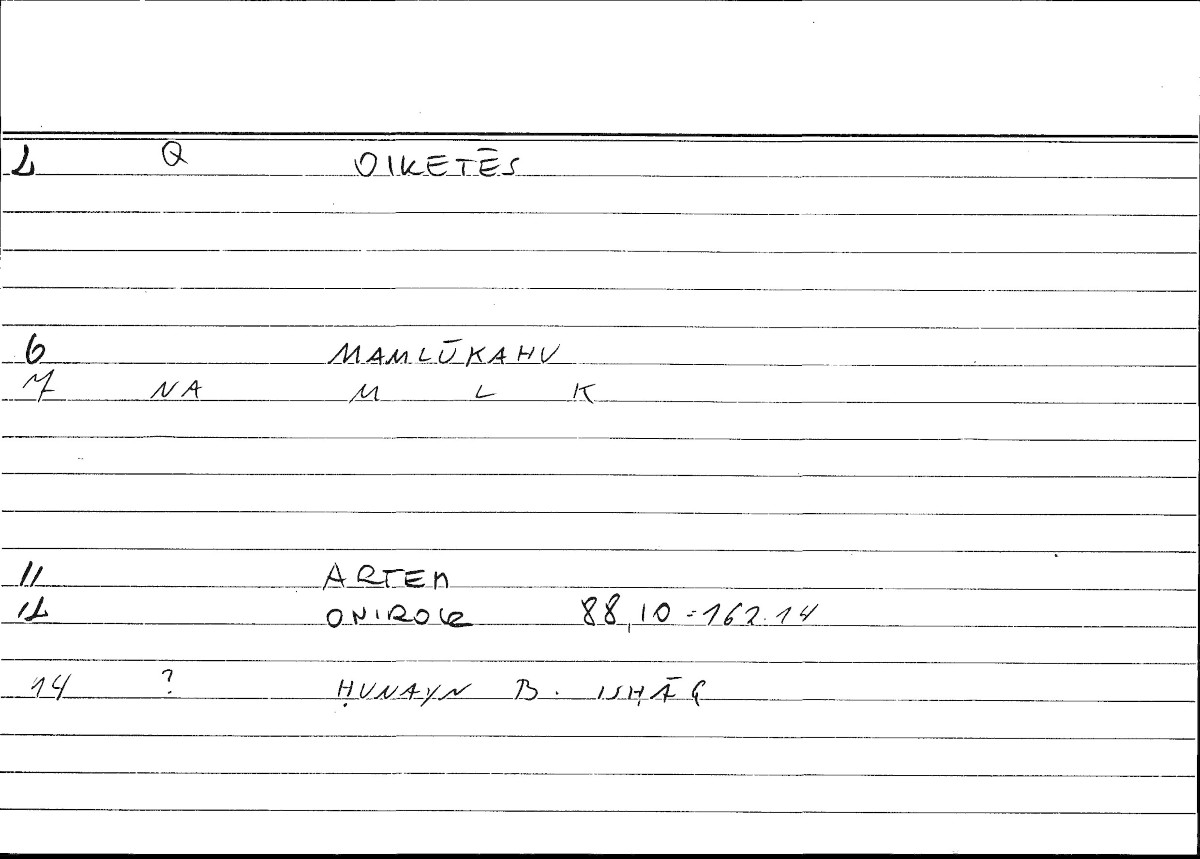 1 Q OIKETĒS
6 MAMLŪKAHU
7 NA M L K
11 ARTEM
12 ONIROCR 88,10 = 162.14
14 ? ḤUNAYN B. ISḤĀQ